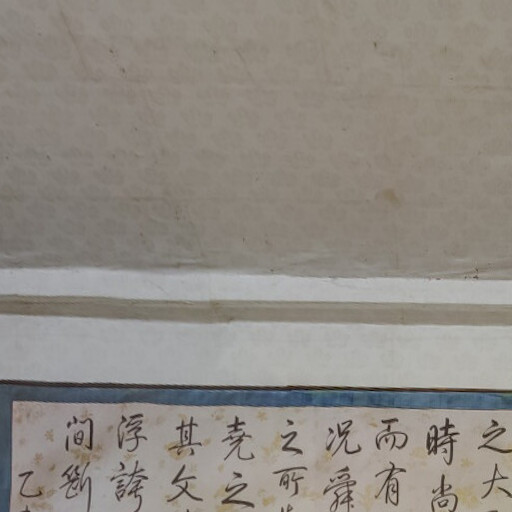 之大
時尚
而有
況舜
之所
堯之
其文
浮誇
間斷
乙